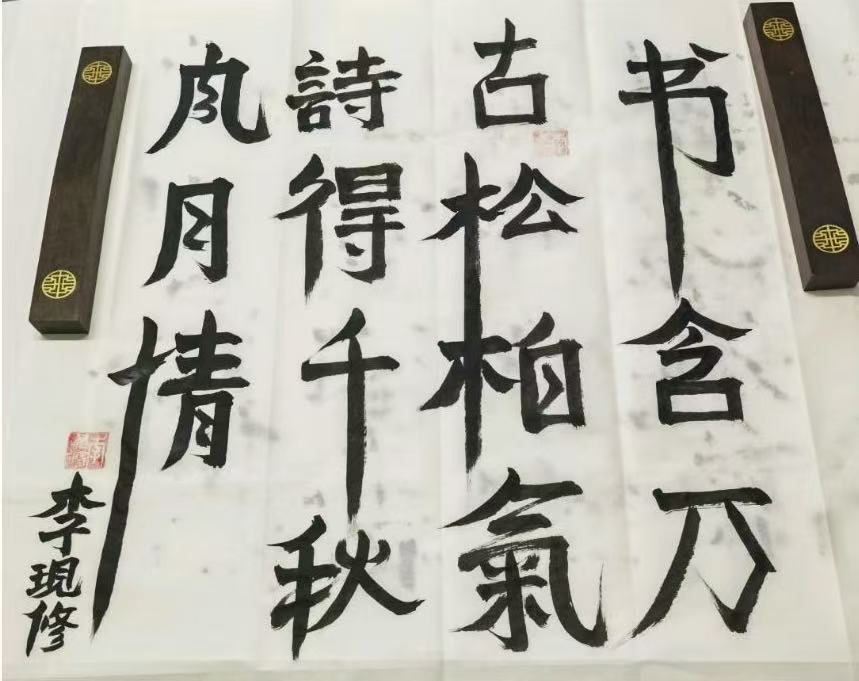 书含万
古松柏氣
詩得千秋
风月情
李現修